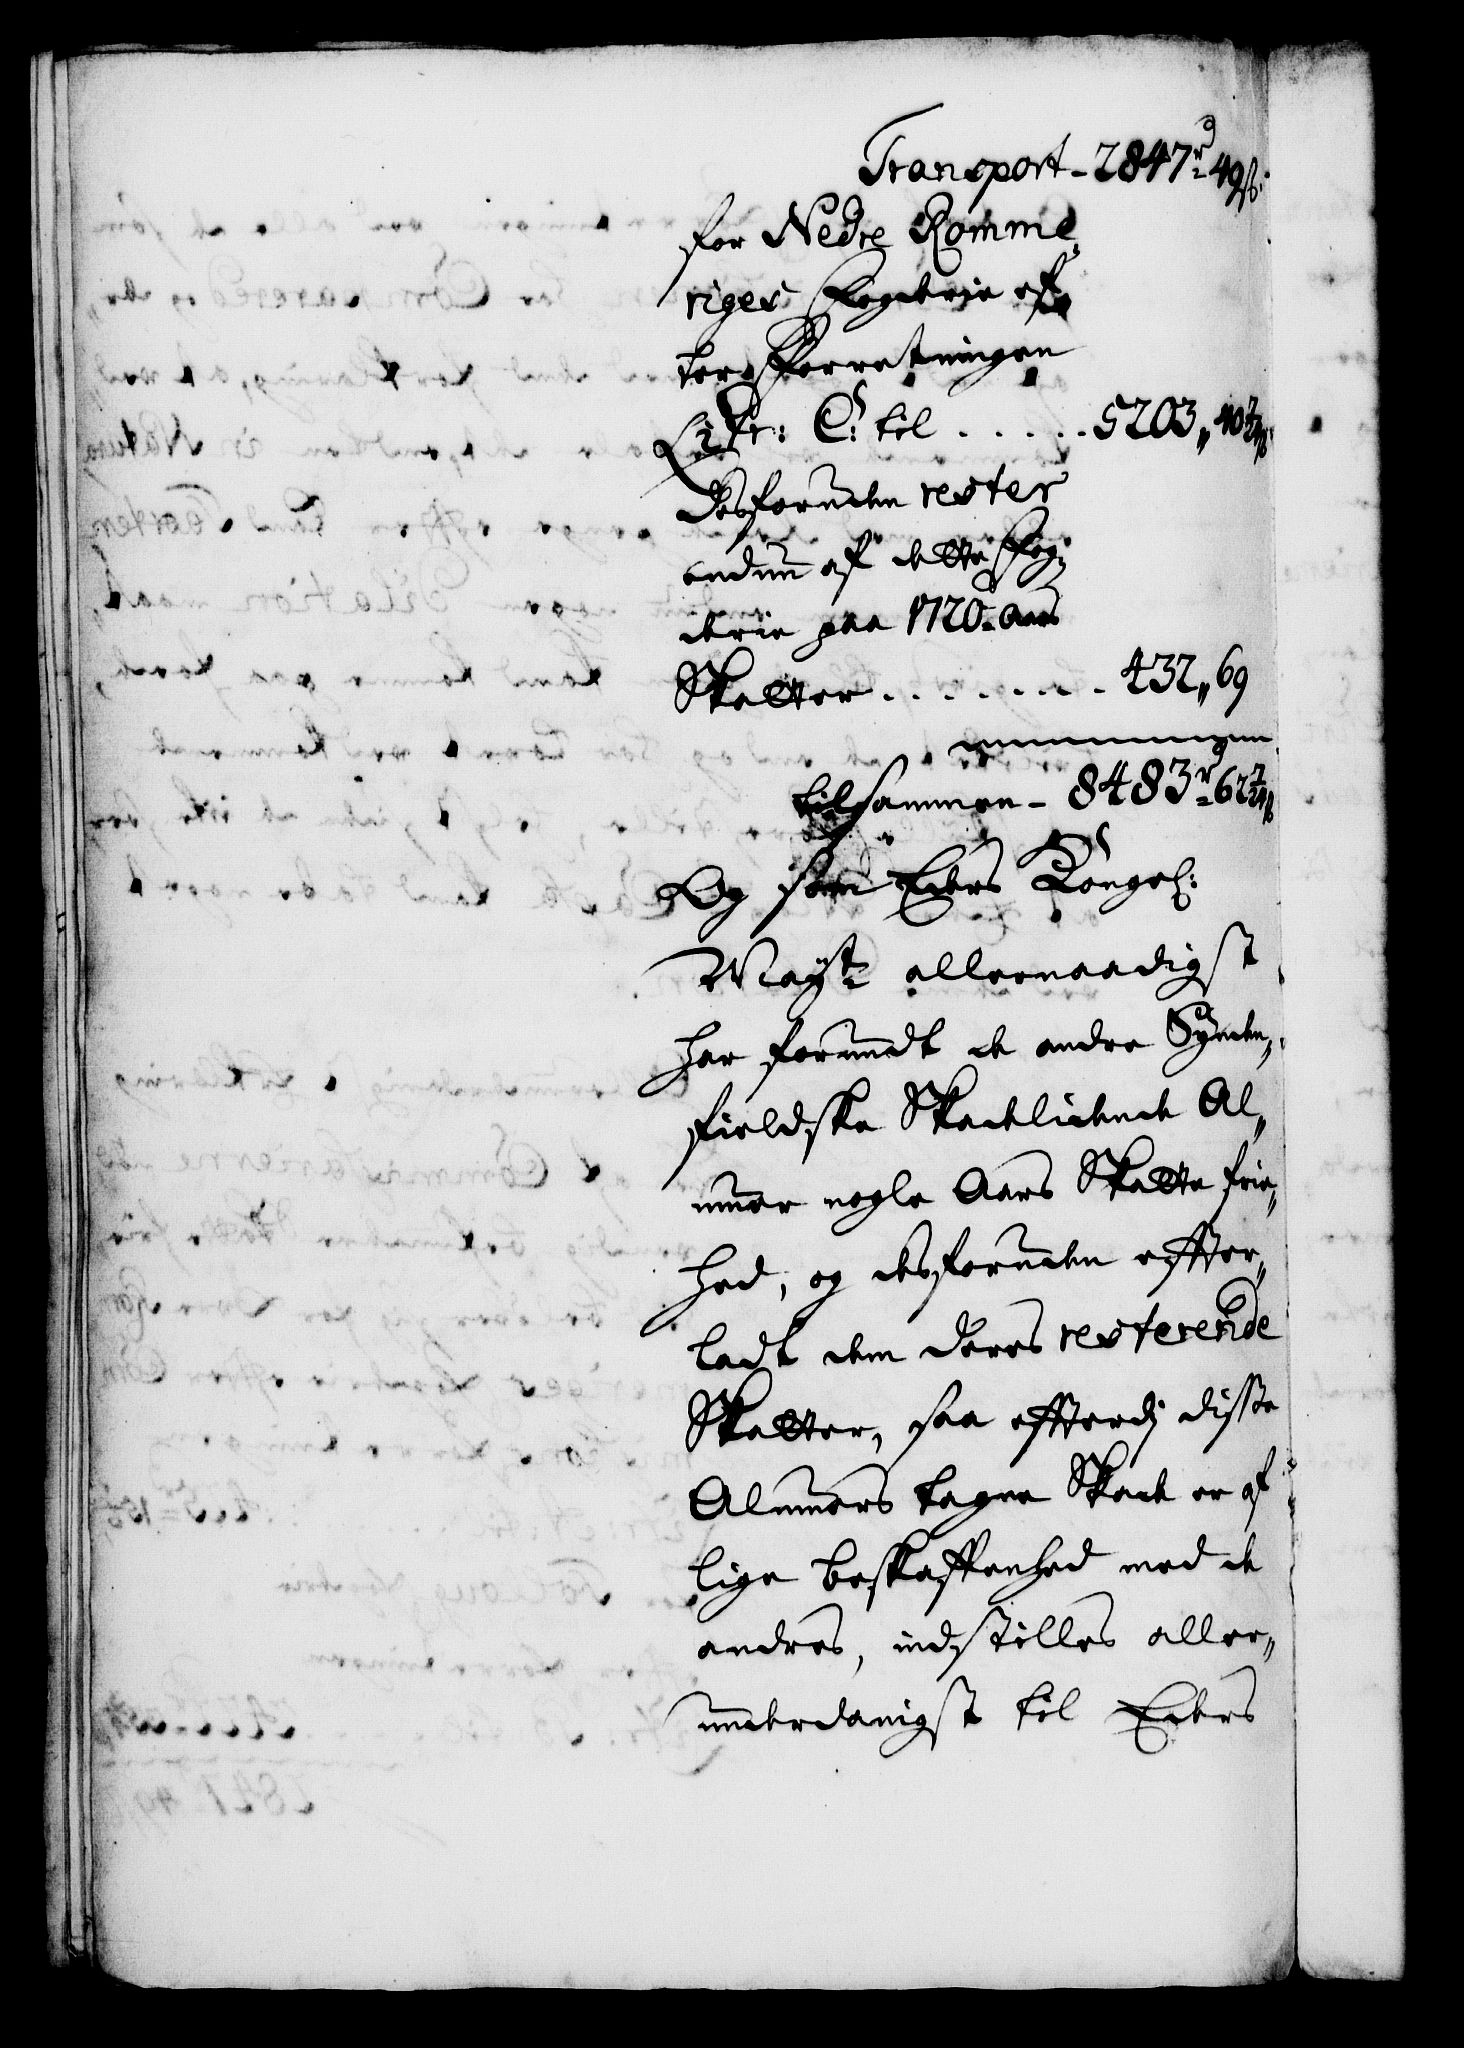 Transport - 2847 rd 49 ß.
for Nedre Romme„
riges Fogderie ef„
ter Forretningen
Litr: C: til . . . . . 5203„ 40½ ß
desforuden rester„
endnu af dette Fog„
derie paa 1720. Aars
Skatter . . . . . . . . 432„ 69
tilsammen - 8483 rd 62½ ß
Og som Eders Kongel:
Mayst: allernaadigst
har forundt de andre Synden„
fieldske Skadelidende Al„
muer nogle Aars Skatte frie„
hed, og desforuden effter„
ladt dem deres resterende
Skatter, saa effterdj disse
Almuers tagne Skade er af
lige beskaffenhed med de
andres, indstilles aller„
underdanigst til Eders